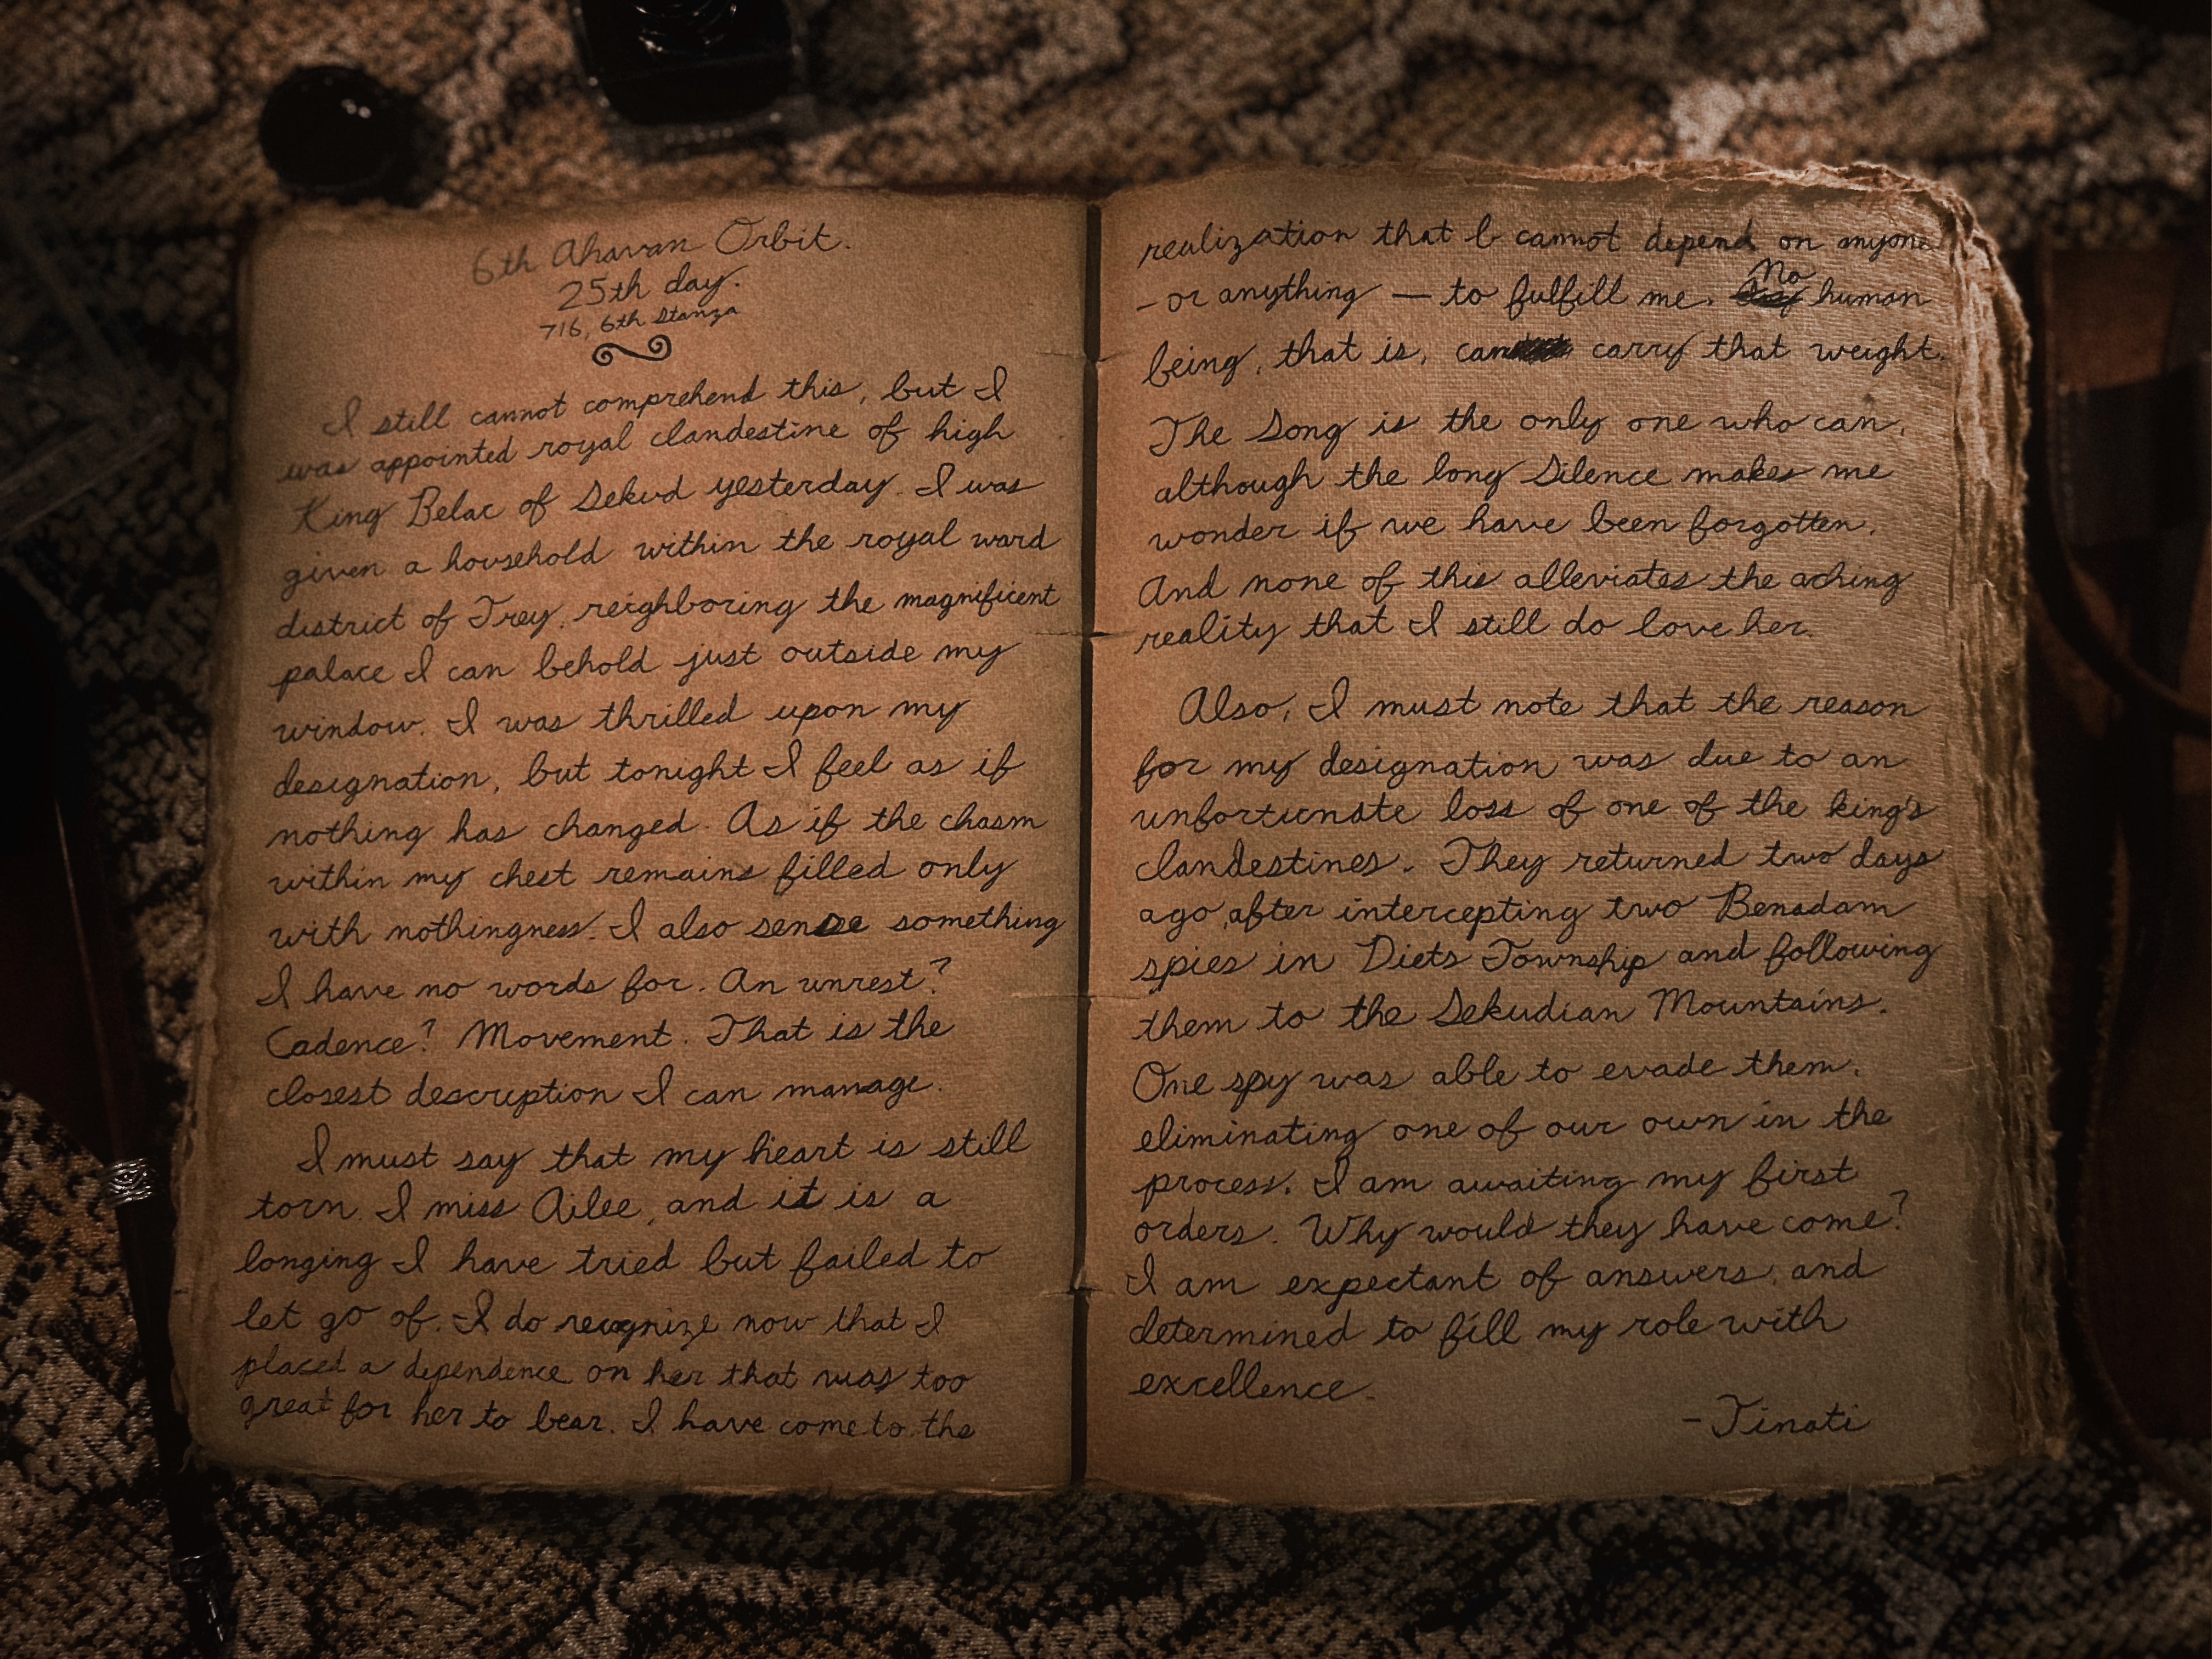 6th Ahavan Orbit.
25th day.
716, 6th Stanza
I still cannot comprehend this, but I
was appointed royal clandestine of high
King Belac of Sekud yesterday. I was
given a household within the royal ward
district of Trey, neighboring the magnificent
palace I can behold just outside my
window. I was thrilled upon my
designation, but tonight I feel as if
nothing has changed. As if the chasm
within my chest remains filled only
with nothingness. I also sense something
I have no words for. An unrest?
Cadence? Movement. That is the
closest description I can manage.
I must say that my heart is still
torn. I miss Ailee, and it is a
longing I have tried but failed to
let go of. I do recognize now that I
placed a dependence on her that was too
great for her to bear. I have come to the
realization that I cannot depend on anyone
- or anything — to fulfill me. No human
being, that is, can carry that weight.
The Song is the only one who can,
although the long Silence makes me
wonder if we have been forgotten.
And none of this alleviates the aching
reality that I still do love her.
Also, I must note that the reason
for my designation was due to an
unfortunate loss of one of the king's
clandestines. They returned two days
ago, after intercepting two Benadam
spies in Diets Township and following
them to the Sekudian Mountains.
One spy was able to evade them,
eliminating one of our own in the
process. I am awaiting my first
orders. Why would they have come?
I am expectant of answers, and
determined to fill my role with
excellence.
- Tinati